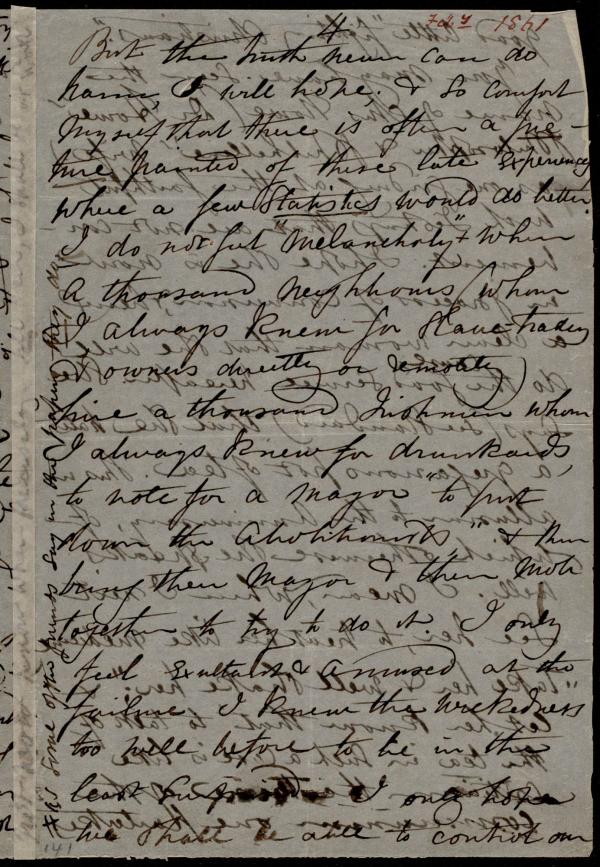 4
Feby 1861
But the truth never can do
harm, I will hope; & so comfort
myself that there is often a pic-
ture painted of these late "Experiences"
where a few Statistics would do better.
I do not feel "Melancholy" + when
a thousand neighbours (whom
I always knew for Slave-traders
& owners directly or remotely)
hire a thousand Irishmen whom
I always knew for drunkards,
to vote for a Mayor "to put
down the Abolitionists," & then
bring their Mayor & their Mob
together to try to do it. I only
feel exultant & amused at the
failure. I knew the wickedness
too well before to be in the
least surprised. I only hope
we shall be able to control our
+ as some of the friends say in the papers they do.
141